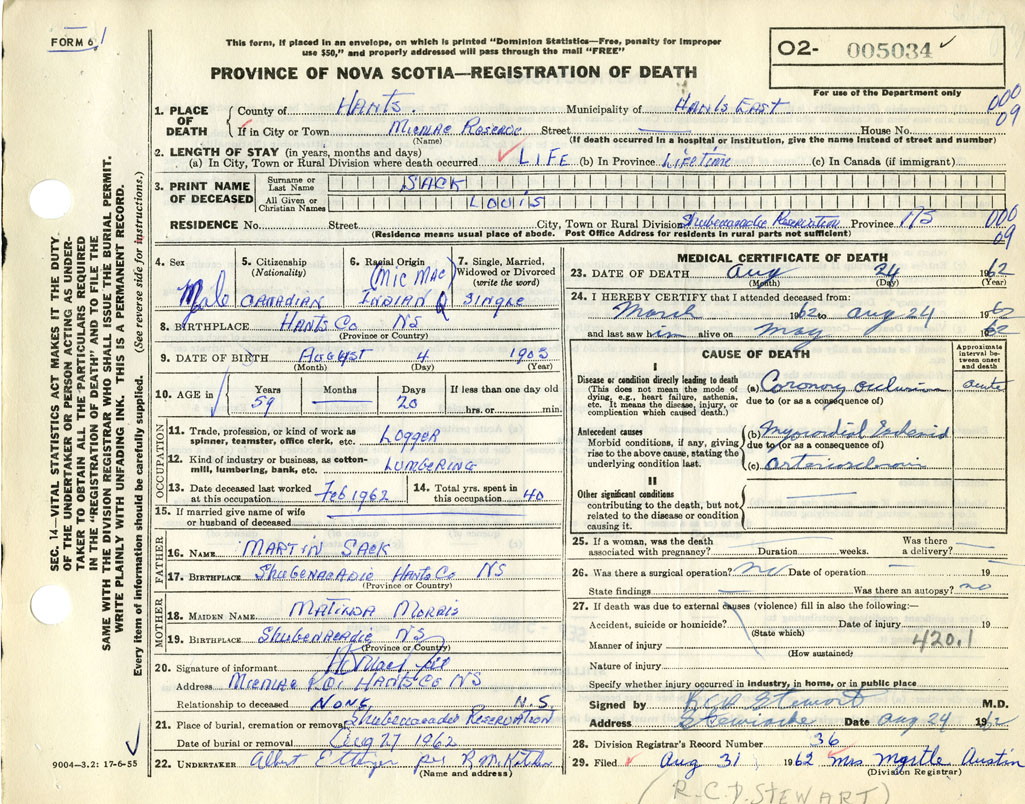 FORM 6
1
This form, if placed in an envelope, on which is printed "Dominion Statistics—Free, penalty for improper
use $50," and properly addressed will pass through the mail "FREE"
PROVINCE OF NOVA SCOTIA—REGISTRATION OF DEATH
O2- 005034
For use of the Department only
000
09
1. PLACE OF DEATH
County of HANTS. Municipality of HANTS EAST
If in City or Town MICMAC Street — House No.
(Name) (If death occurred in a hospital or institution, give the name instead of street and number)
2. LENGTH OF STAY (in years, months and days)
(a) In City, Town or Rural Division where death occurred LIFE (b) In Province LIFETIME (c) In Canada (if immigrant)
3. PRINT NAME OF DECEASED
Surname or Last Name SACK
All Given or Christian Names LOUIS
RESIDENCE No. Street City, Town or Rural Division Shubenacadie Reservation Province N/S
000
09
(Residence means usual place of abode. Post Office Address for residents in rural parts not sufficient)
4. Sex
Male
5. Citizenship
(Nationality)
CANADIAN
6. Racial Origin
(MIC MAC)
INDIAN
7. Single, Married,
Widowed or Divorced
(write the word)
SINGLE
8. BIRTHPLACE HANTS Co NS
(Province or Country)
9. DATE OF BIRTH August 4 1903
(Month) (Day) (Year)
10. AGE in
Years Months Days If less than one day old
59 — 20 hrs. or min.
OCCUPATION
11. Trade, profession, or kind of work as
spinner, teamster, office clerk, etc. LOGGER
12. Kind of industry or business, as cotton-
mill, lumbering, bank, etc. LUMBERING
13. Date deceased last worked
at this occupation Feb 1962
14. Total yrs. spent in
this occupation 40
15. If married give name of wife
or husband of deceased —
FATHER
16. NAME MARTIN SACK
17. BIRTHPLACE Shubenacadie Hants Co NS
(Province or Country)
MOTHER
18. MAIDEN NAME MATILDA MORRIS
19. BIRTHPLACE Shubenacadie NS
(Province or Country)
20. Signature of informant
Address MICMAC HANTS Co NS
Relationship to deceased NONE N.S.
21. Place of burial, cremation or removal Shubenacadie RESERVATION
Date of burial or removal Aug 27 1962
22. UNDERTAKER Albert per
(Name and address)
MEDICAL CERTIFICATE OF DEATH
23. DATE OF DEATH Aug 24 1962
(Month) (Day) (Year)
24. I HEREBY CERTIFY that I attended deceased from:
March 1962 to Aug 24 1962
and last saw him alive on May 1962
CAUSE OF DEATH
Approximate
interval be-
tween onset
and death
I
Disease or condition directly leading to death
(This does not mean the mode of
dying, e.g., heart failure, asthenia,
etc. It means the disease, injury, or
complication which caused death.)
(a) Coronary occlusion acute
due to (or as a consequence of)
Antecedent causes
Morbid conditions, if any, giving
rise to the above cause, stating the
underlying condition last.
(b) Myocardial
due to (or as a consequence of)
(c)
II
Other significant conditions
contributing to the death, but not
related to the disease or condition
causing it.
—
25. If a woman, was the death
associated with pregnancy? — Duration weeks.
Was there
a delivery? —
26. Was there a surgical operation? no Date of operation — 19
State findings — Was there an autopsy? no
27. If death was due to external causes (violence) fill in also the following:—
Accident, suicide or homicide? Date of injury 19
(State which)
Manner of injury 420.1
(How sustained)
Nature of injury
Specify whether injury occurred in industry, in home, or in public place
Signed by R.C.D. Stewart M.D.
Address Stewiacke Date Aug 24 1962
28. Division Registrar's Record Number 36
29. Filed Aug 31 1962 Mrs Myrtle Austin
(Division Registrar)
(R.C.D. STEWART)
SEC. 14—VITAL STATISTICS ACT MAKES IT THE DUTY
OF THE UNDERTAKER OR PERSON ACTING AS UNDER-
TAKER TO OBTAIN ALL THE PARTICULARS REQUIRED
IN THE "REGISTRATION OF DEATH" AND TO FILE THE
SAME WITH THE DIVISION REGISTRAR WHO SHALL ISSUE THE BURIAL PERMIT.
WRITE PLAINLY WITH UNFADING INK. THIS IS A PERMANENT RECORD.
Every item of information should be carefully supplied. (See reverse side for instructions.)
9004-3.2: 17-6-55